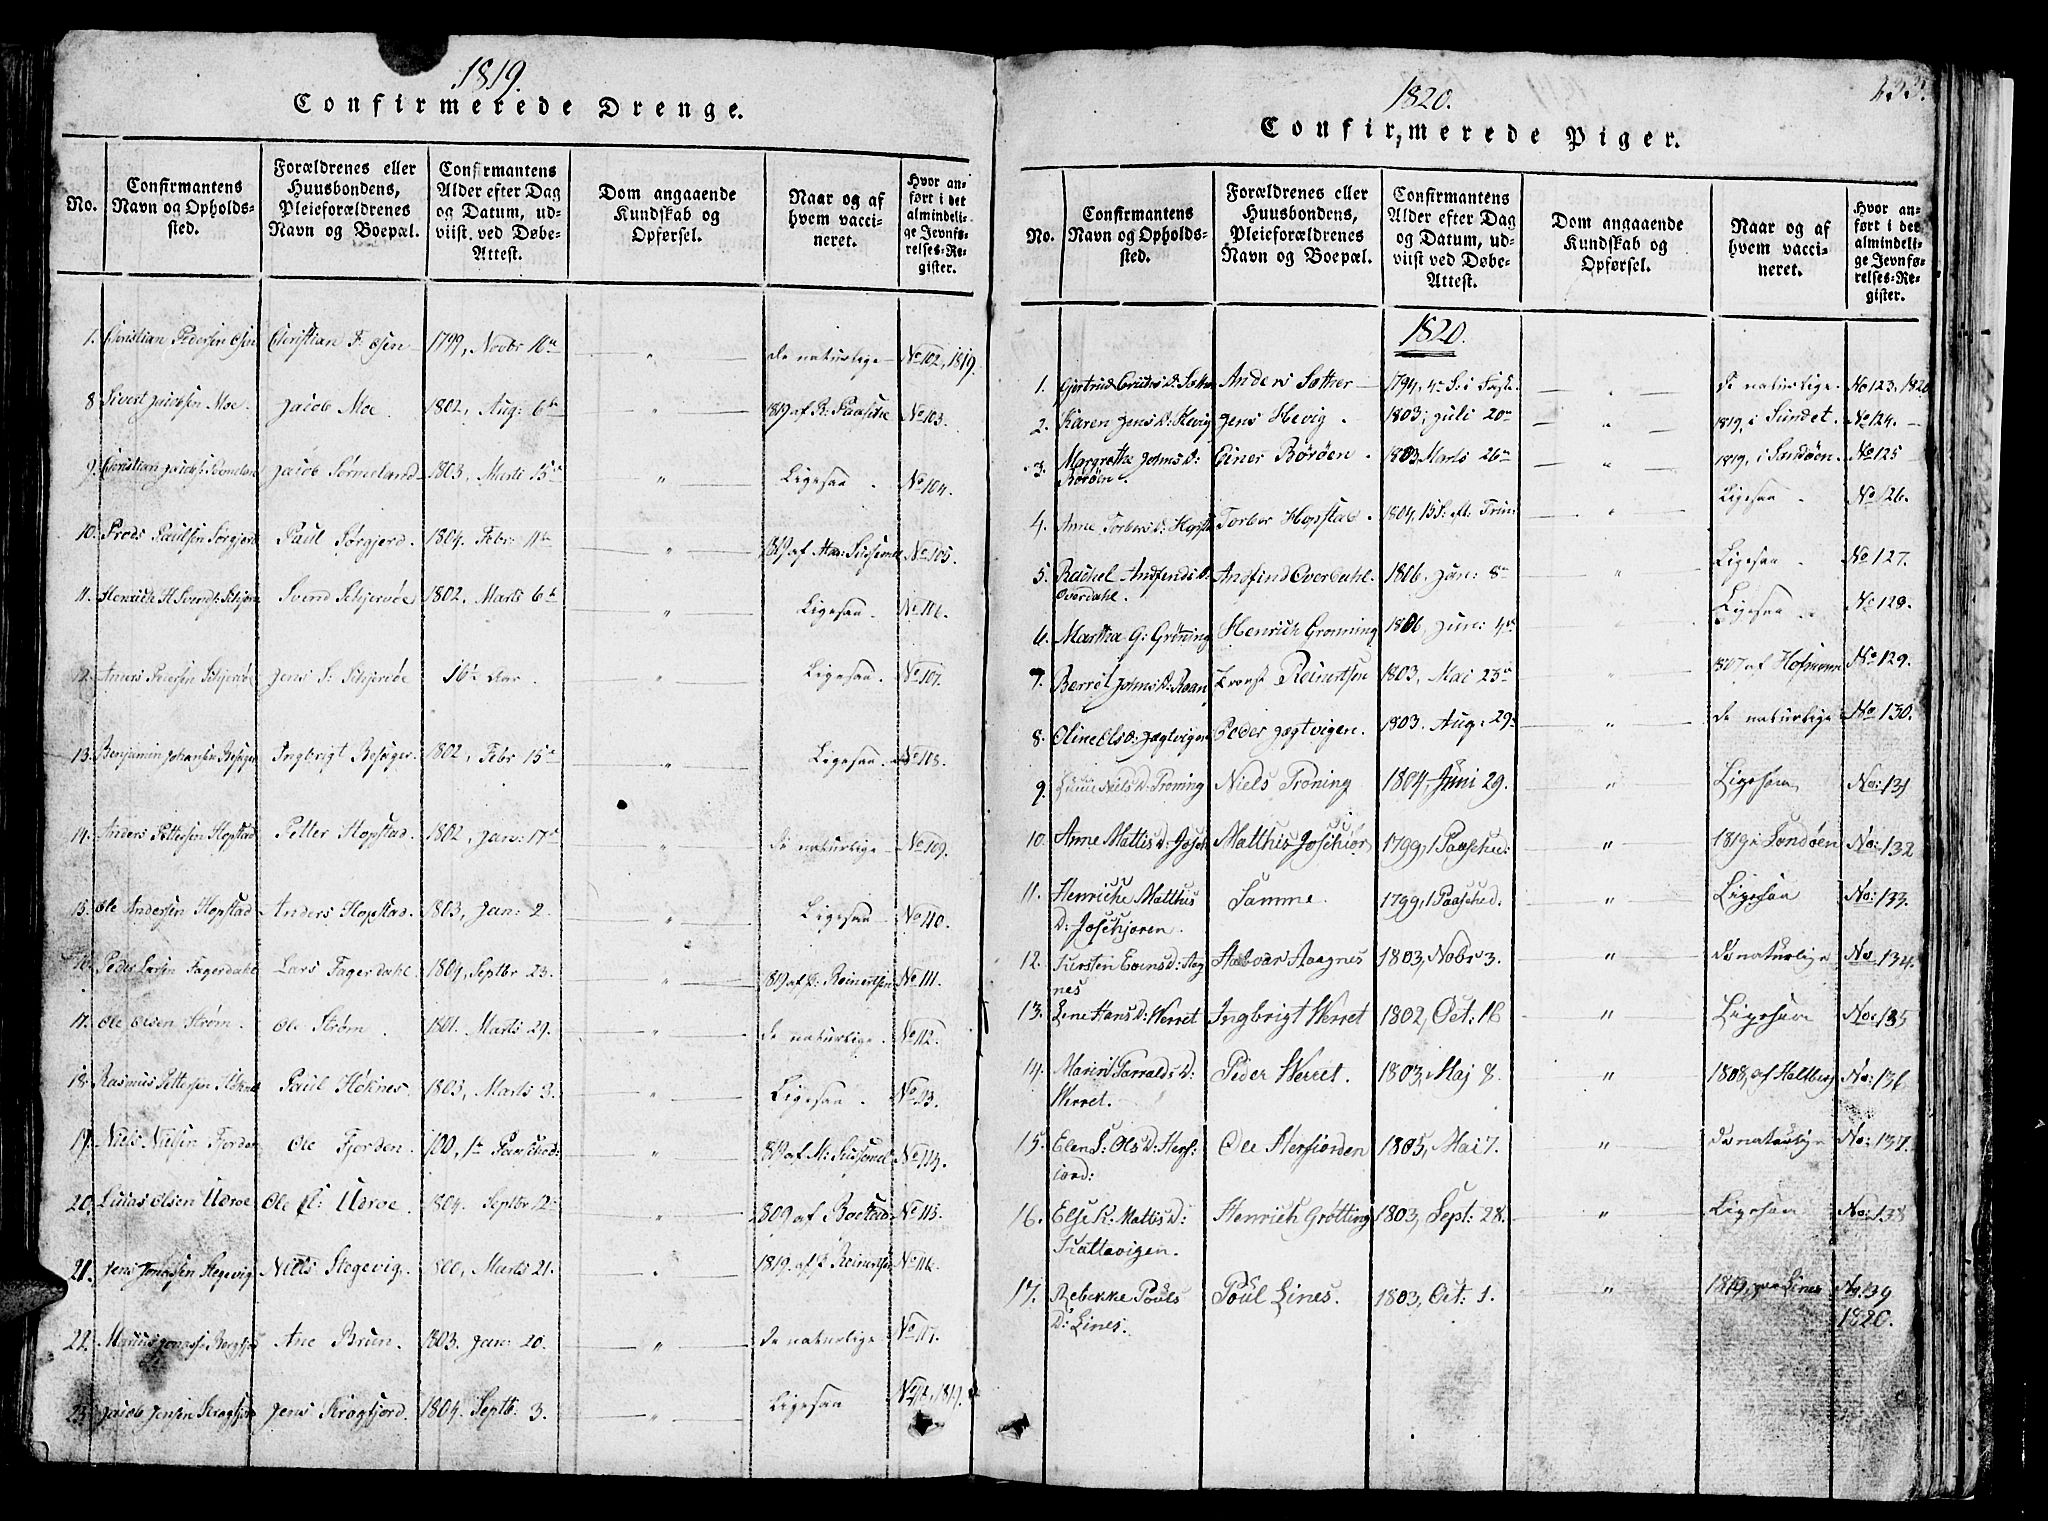 1819.
Confirmerede Drenge.
No.
Confirmantens Navn og Opholds-sted.
Forældrenes eller Huusbondens, Pleieforældrenes Navn og Boepæl.
Confirmantens Alder efter Dag og Datum, ud-viist ved Døbe-Attest.
Dom angaaende Kundskab og Opførsel.
Naar og af hvem vacci-neret.
Hvor an-ført i det almindeli-ge Jevnfø-relses-Re-gister.
7. Christian Pedersen Christian 1799, Novbr 10de " de naturlige No 102, 1819.
8 Sivert Jacobsen Moe. Jacob Moe. 1802, Aug: 6te " 1819 af R: Paasche No 103.
9. Christian Jacob 1803, Marts 15de " Ligesaa. No 104.
10. Paulsen Sørgjerd Paul Sørgjerd. 1804. Febr: 11te " 1819 af No 105.
11. Svend 1802, Marts 6te " Ligesaa. No 106.
12. Jens S: 16 Aar. " Ligesaa. No 107.
13. Benjamin Johansen Besager Ingbrigt Besager. 1802, Febr 15de " Ligesaa. No 108.
14. Anders Pettersen Hopstad Petter Hopstad. 1802, Jan: 17de " de naturlige No 109.
15. Ole Andersen Hopstad Anders Hopstad. 1803, Jan: 2. " Ligesaa. No 110.
16. Peder Larsen Fagerdahl Lars Fagerdahl. 1804, Septbr 23. " 1819 af P: Reinertsen No 111.
17. Ole Olsen Strøm. Ole Strøm. 1801. Marts 29. " de naturlige. No 112.
18. Rasmus Pettersen Høknes Paul Høknes. 1803, Marts 3. " Ligesaa. No 113.
19. Niels Nielsen Fjorden Ole Fjorden. " 1819 af M:
20. Lucas Olsen Udroe. Ole Udroe. 1804. Septbr 12. " 1809 af No 115.
21. Jens Jonassen Stegevig Niels Stegevig. 1800, Marts 21. " 1819. af P: Reinertsen No 116.
22. Ane Brun. 1803. Jan: 20. " de naturlige No 117.
23. Jacob Jensen Kragfjord Jens Kragfjord. 1804. Septb. 3. " Ligesaa
1820.
Confirmerede Piger.
No.
Confirmantens Navn og Opholds-sted.
Forældrenes eller Huusbondens, Pleieforældrenes Navn og Boepæl.
Confirmantens Alder efter Dag og Datum, ud-viist ved Døbe-Attest.
Dom angaaende Kundskab og Opførsel.
Naar og af hvem vacci-neret.
Hvor an-ført i det almindeli-ge Jevnfø-relses-Re-gister.
1820.
1. Anders Sætter 1794, 4de S: i Faste. " de naturlige. No 123, 1820
2. Karen Jens D: Hevig Jens Hevig. 1803, Juli 20de " 1819, i Sundet. No 124.
3. Margrethe Johns D: Einer Børøen. 1803, Marts 26de " 1819, i Sandøen. No 125
Børøen.
4. Anne Torbers D: Hopstad Torber Hopstad. 1804, 15 S: eft: Trin: " Ligesaa. No 126.
5. Rachel Andfinds D: Andfind Overdahl. 1806. Jan: 8de " Ligesaa. No 127.
Overdahl.
6. Martha G: Grønning Henrich Grønning 1806, Jun: 4de Ligesaa. No 128.
7. Berrol Johns D: Raan Reinertsen 1803, Mai 23de " 1807 af Hofmann No 129.
8. Oline Ols D: Jægtvigen Peder Jægtvigen. 1803. Aug: 29. " de naturlige No 130.
9. Niels D: Trøning Niels Trøning 1804, Juni 29. " Ligesaa No: 131
10. Anne Mattis D: Matthis 1799, 1 Paasched: " 1819 i Sandøen No: 132
11. Henricke Matthis Samme. 1799, 1 Paasched. " Ligesaa No: 133.
D: Josehjoren.
12. Kirsten Evens D: Aag Halvor Aagnes 1803, Nobr 3. " de naturlige No 134.
nes
13. Lene Hans D: Werret Ingbrigt Werret 1802, Oct: 16 " Ligesaa No: 135
14. Marit Tarralds D: Peder Werret. 1803, Maj 8. " 1808, af Holtberg No: 136
Werret.
15. Elen S: Ols D: Herf Ole Herfiorden 1805, Mai 7. " de naturlige No: 137.
iord:
16. Else K: Mattis D: Henrich Grøtting 1803, Sept: 28. " Ligesaa No: 138
Kattevigen.
17. Rebekke Pouls Poul Lines. 1803, Oct: 1. " 1819, paa Lines No: 139
D: Lines. 1820.